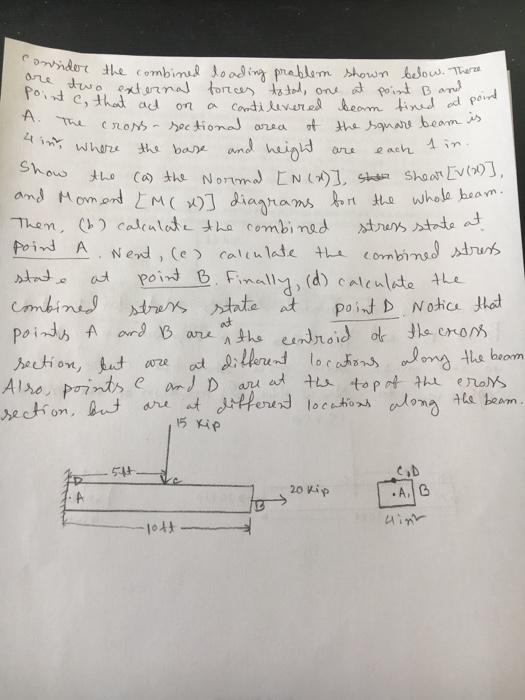 Consider the combined loading problem shown below. There
are two external forces total, one at point B and
point C, that act on a cantilevered beam fixed at point
A. The cross-sectional area of the square beam is
4 in², where the base and height are each 1 in.
Show the (a) the Normal [N(x)], Shear [V(x)],
and Moment [M(x)] diagrams for the whole beam.
Then, (b) calculate the combined stress state at
point A. Next, (c) calculate the combined stress
state at point B. Finally, (d) calculate the
combined stress state at point D. Notice that
points A and B are at the centroid of the cross
section, but are at different locations along the beam
Also, points C and D are at the top of the cross
section, but are at different locations along the beam.
15 Kip
5ft
D
C
C,D
.A
B
20 Kip
.A,
B
10ft
4in²